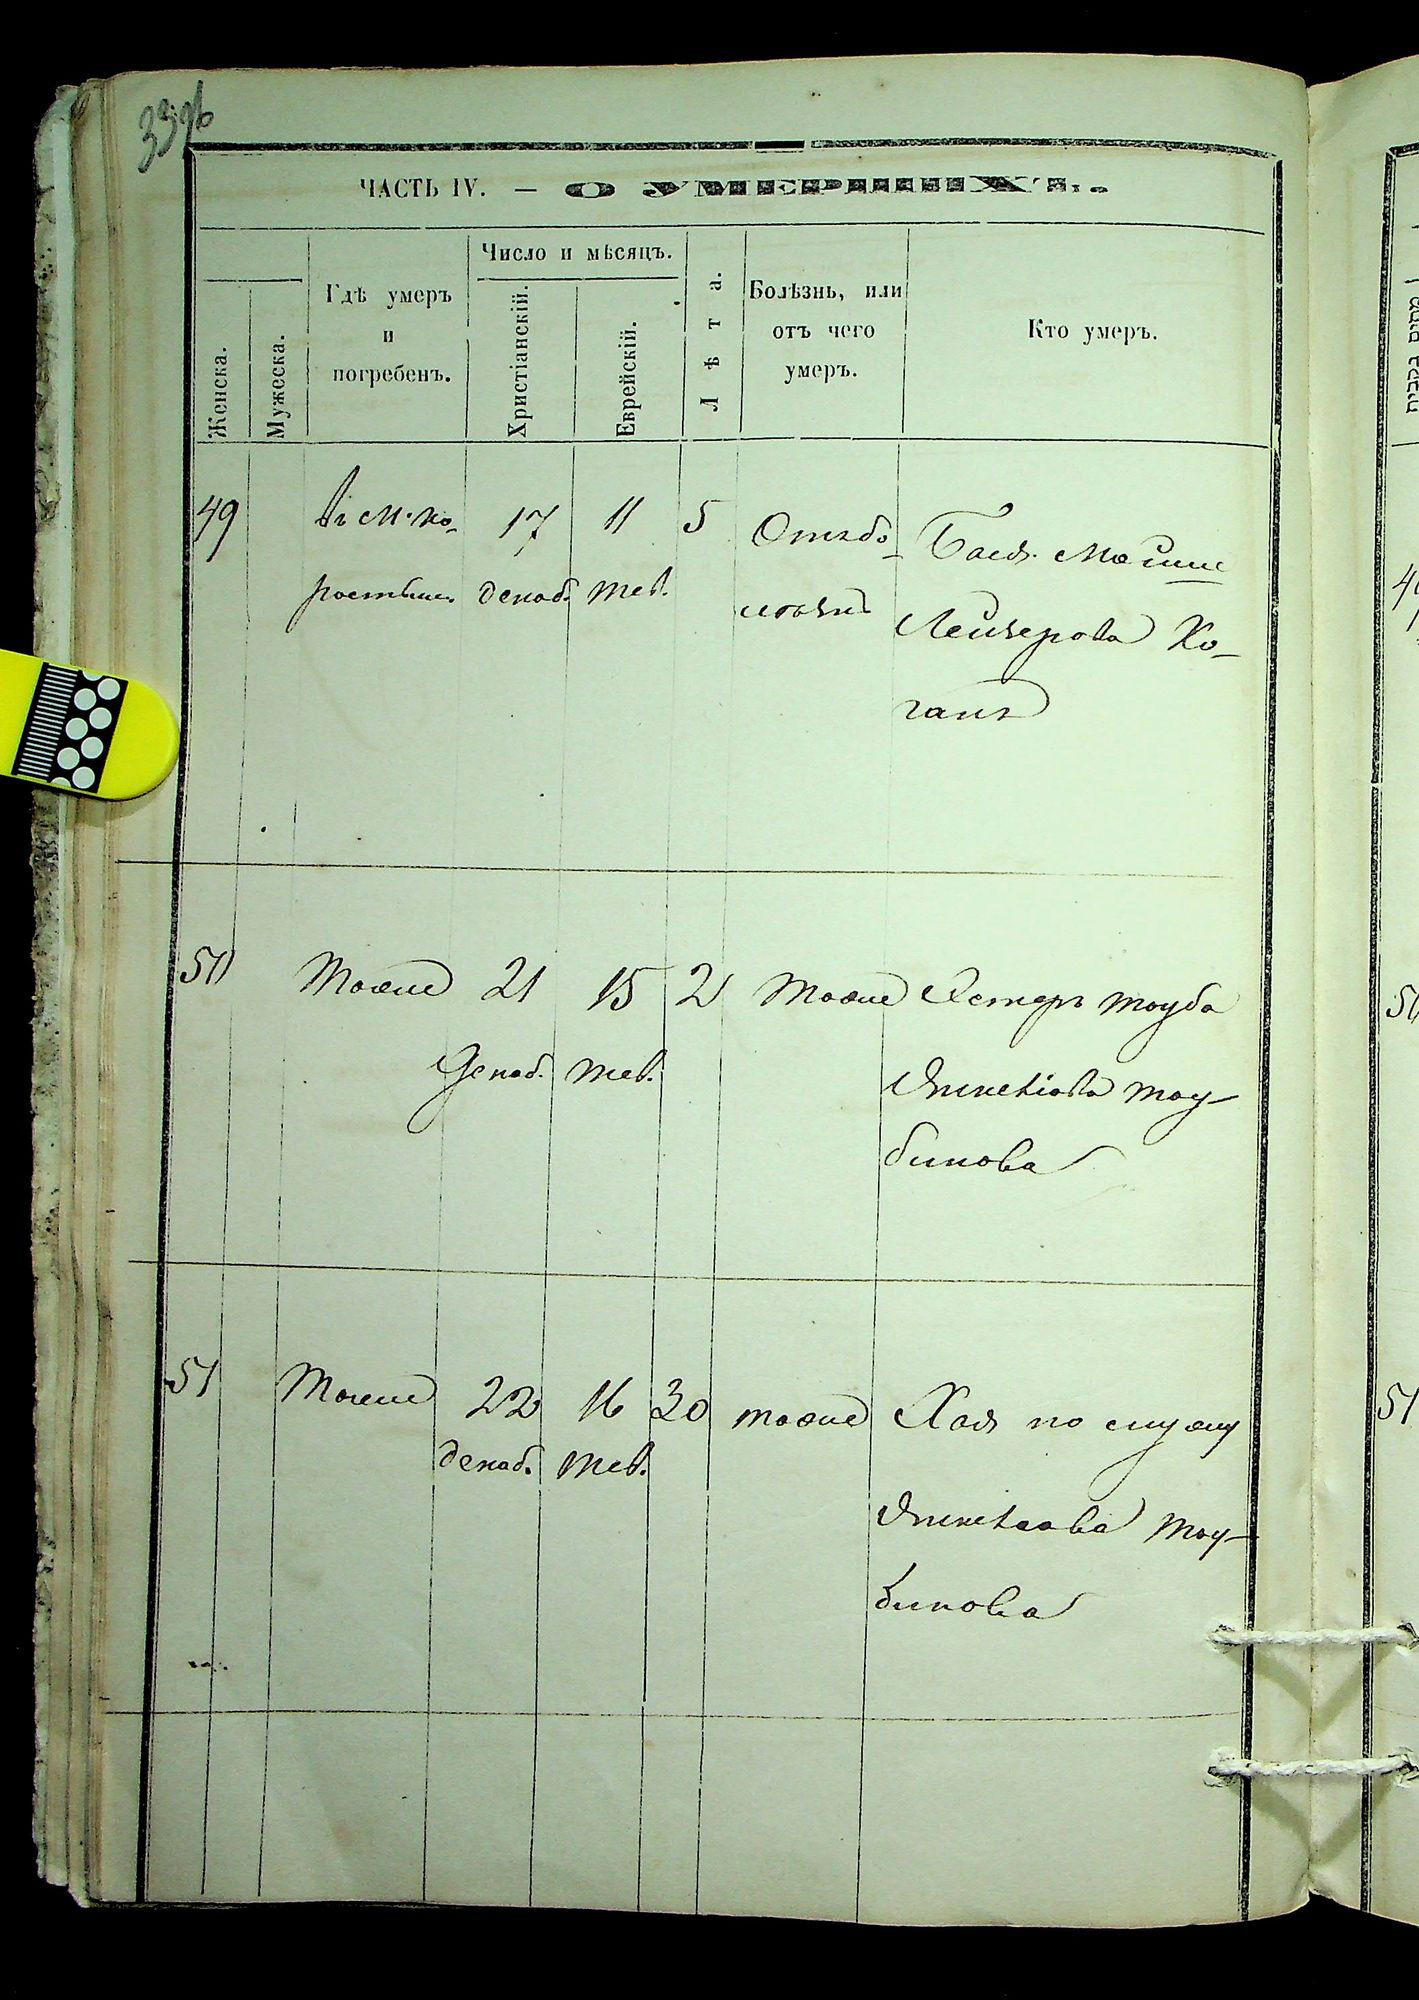 ЧАСТЬ IV. — О УМЕРШИХЪ.
Женска.
Мужеска.
Гдѣ умеръ
и
погребенъ.
Число и мѣсяцъ.
Христіанскій.
Еврейскій.
Лѣта.
Болѣзнь, или
отъ чего
умеръ.
Кто умеръ.
49 Въ М. Ко- 17 11 5 Отъ бо- Бася
ростыш. декаб. тев. Лейзерова Ко-
ганъ
50 Тоже 21 15 2 тоже Естеръ Тауба
Декаб. тев. Тау-
бинова
51 Тоже 22 16 30 тоже Хая по мужу
декаб. тев. Тау-
бинова
50
51